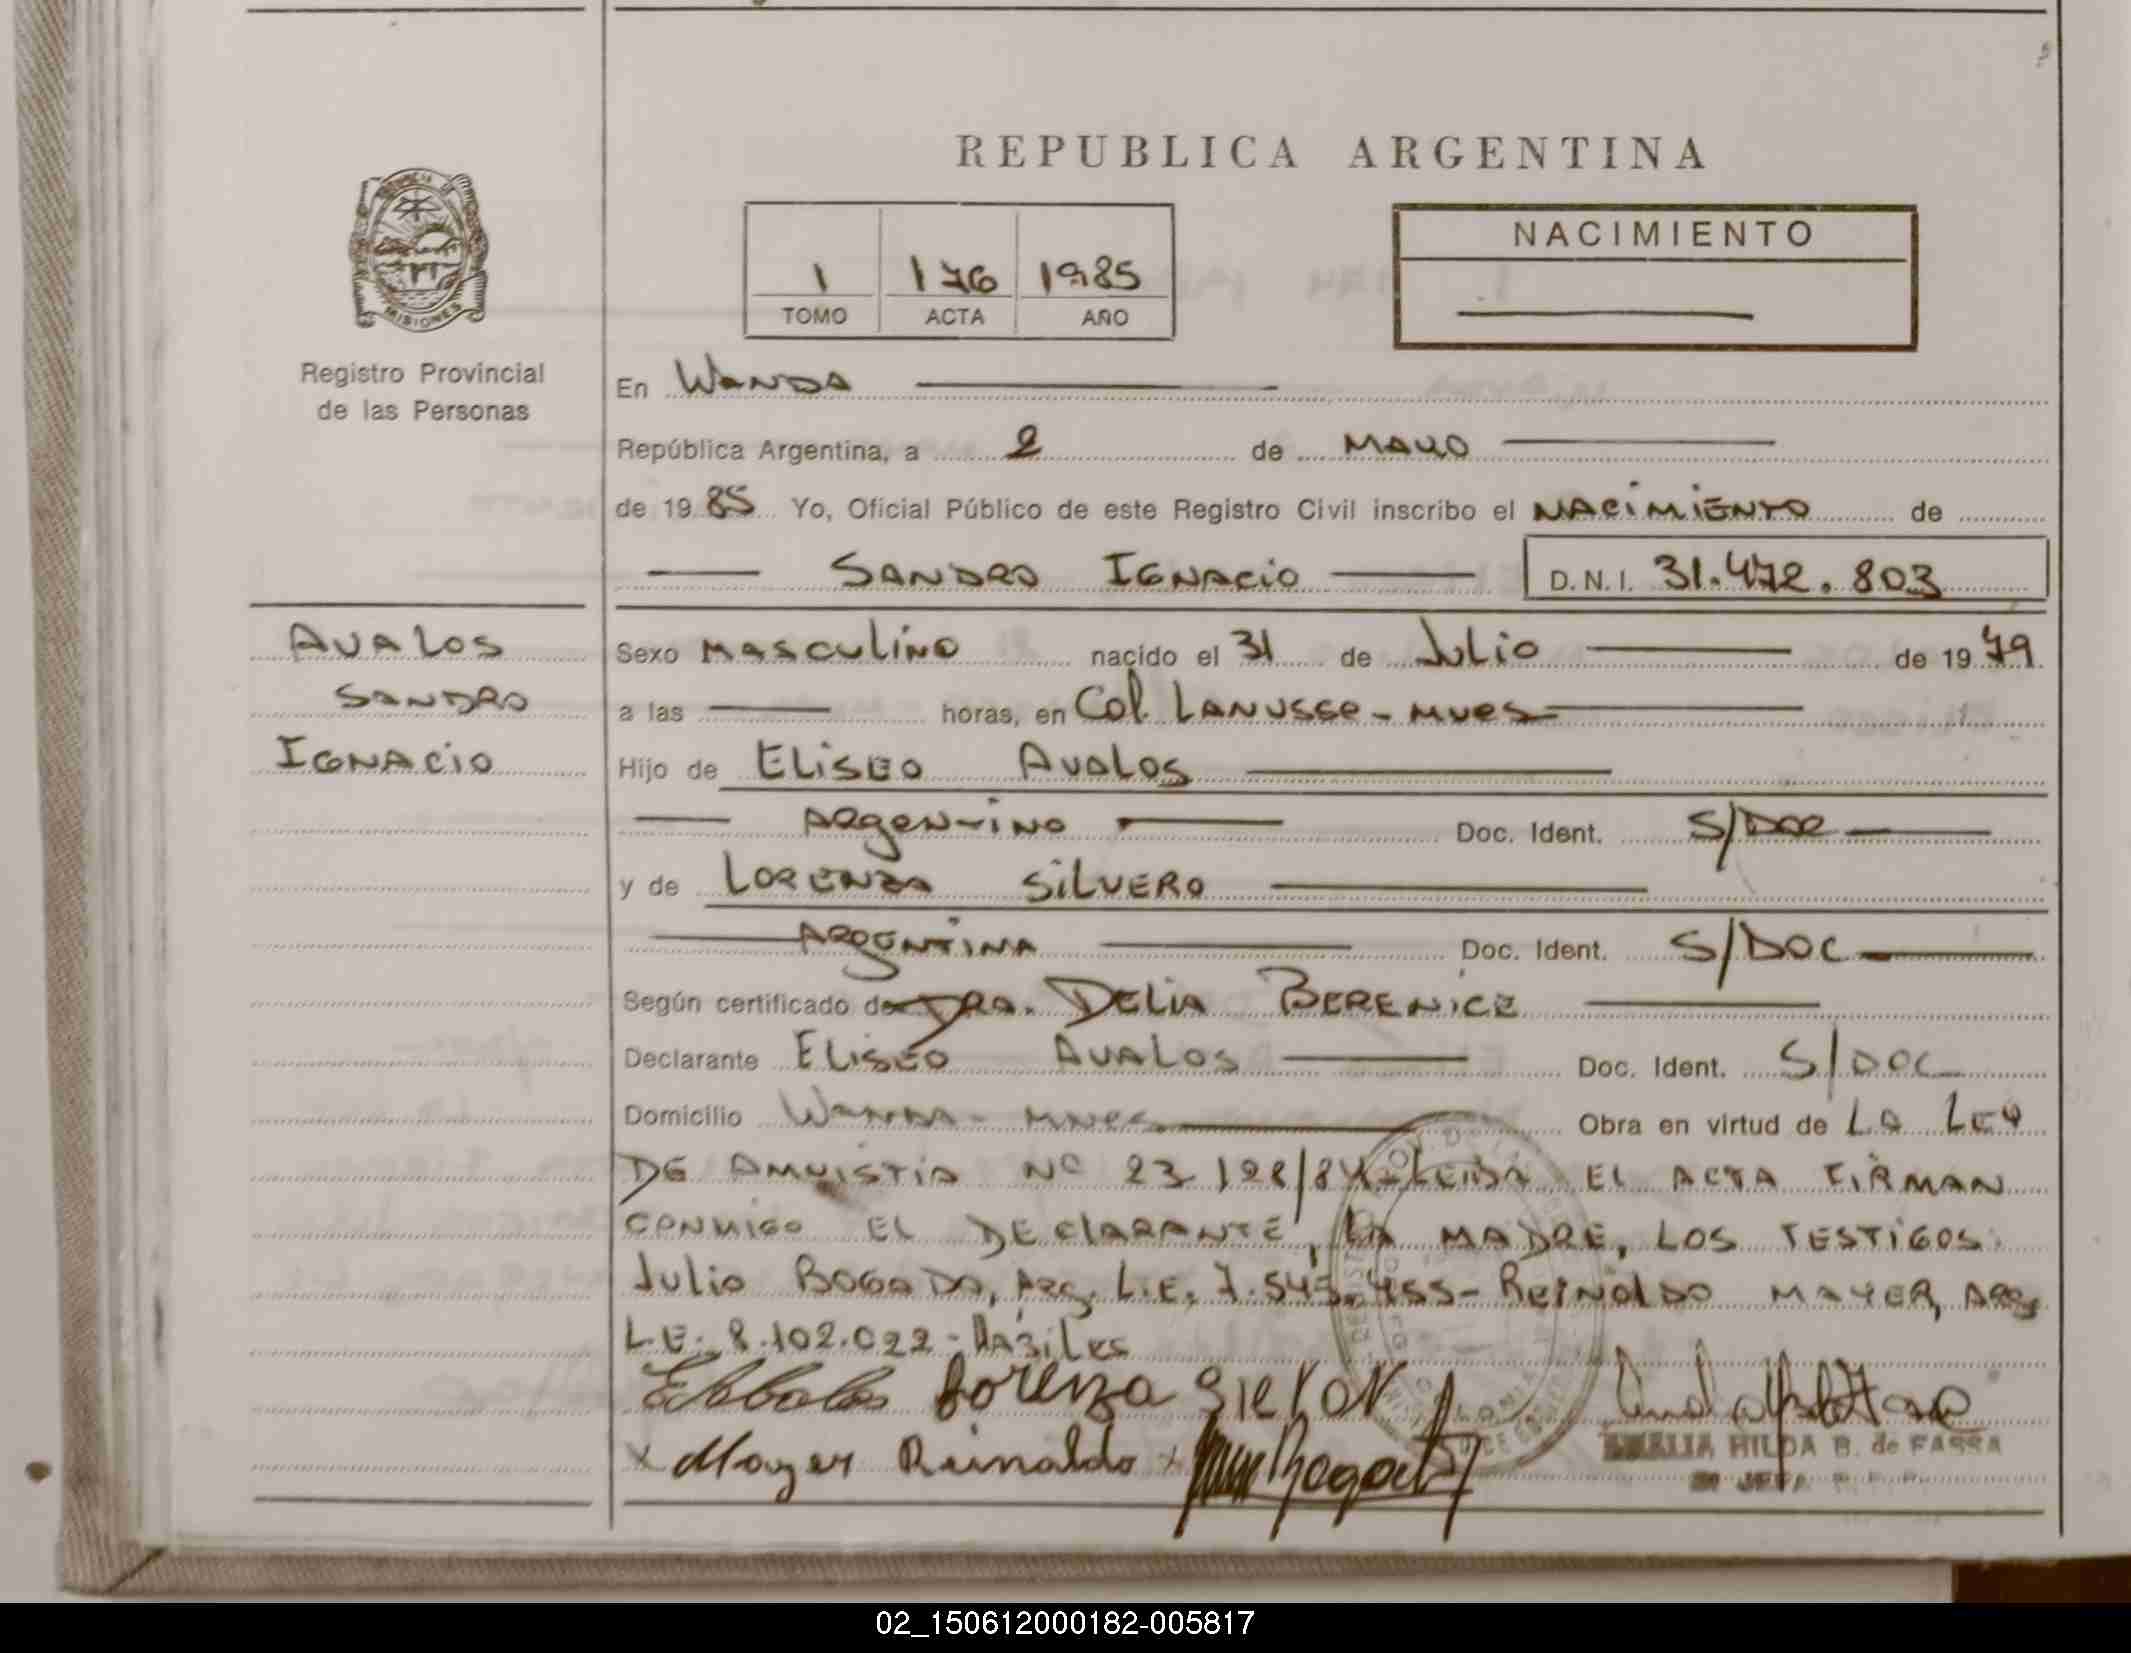 REPUBLICA ARGENTINA
MISIONES
Registro Provincial
de las Personas
1 176 1985
TOMO ACTA AÑO
NACIMIENTO
En WANDA
República Argentina, a 2 de MAYO
de 1985 Yo, Oficial Público de este Registro Civil inscribo el NACIMIENTO de
SANDRO IGNACIO D.N.I. 31.472.803
AVALOS
SANDRO
IGNACIO
Sexo MASCULINO nacido el 31 de JULIO de 1979
a las horas, en Col. LANUSSE - MNES
Hijo de ELISEO AVALOS
ARGENTINO Doc. Ident. S/DOC
y de LORENZA SILVERO
ARGENTINA Doc. Ident. S/DOC
Según certificado de DRA. DELIA BERENICE
Declarante ELISEO AVALOS Doc. Ident. S/DOC
Domicilio WANDA - MNES Obra en virtud de LA LEY
DE AMNISTIA Nº 23128/84 - LEIDA EL ACTA FIRMAN
CONMIGO EL DECLARANTE, LA MADRE, LOS TESTIGOS
JULIO BOGADO, ARG. L.E. 7.545.455 - REINALDO MAYER, ARG
L.E. 8.102.022 - HABILES
Lorenza
x Mayer Reinaldo x Bogado
AMALIA HILDA B. de FARRA
JEFA
02_150612000182-005817